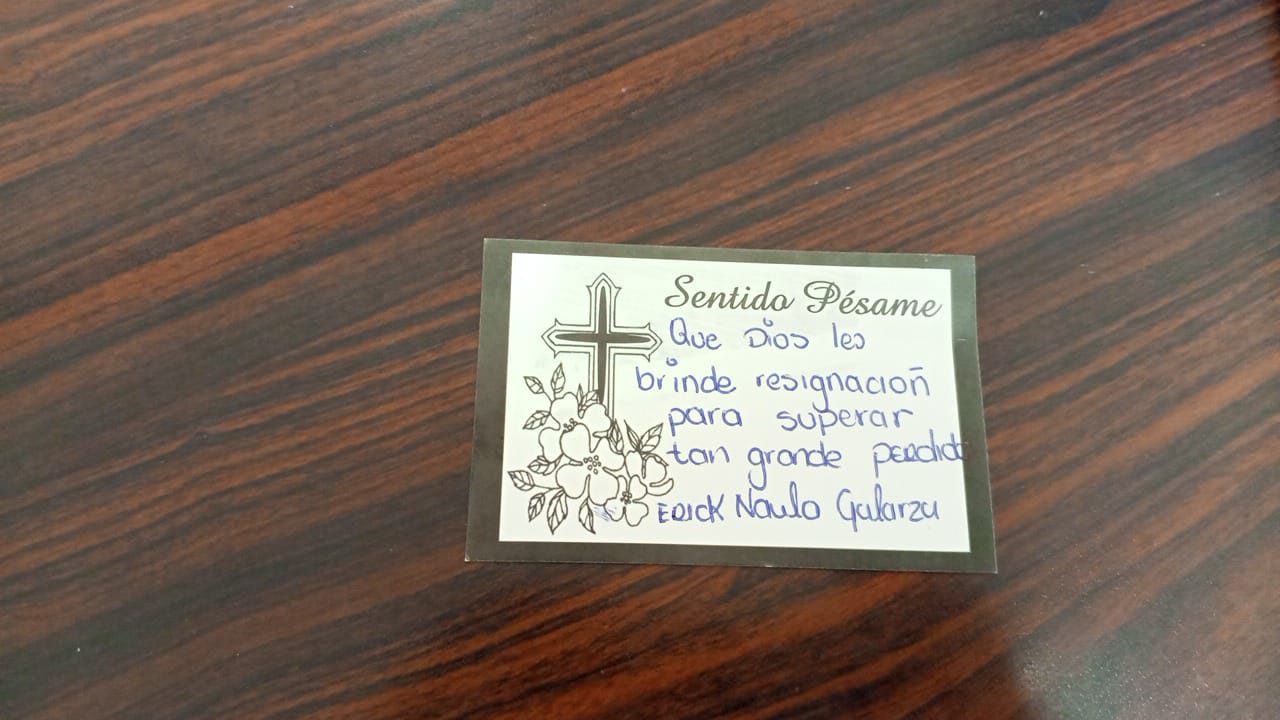 Sentido Pésame
Que Dios les
brinde resignación
para superar
tan grande perdida
Erick Naula Galarza